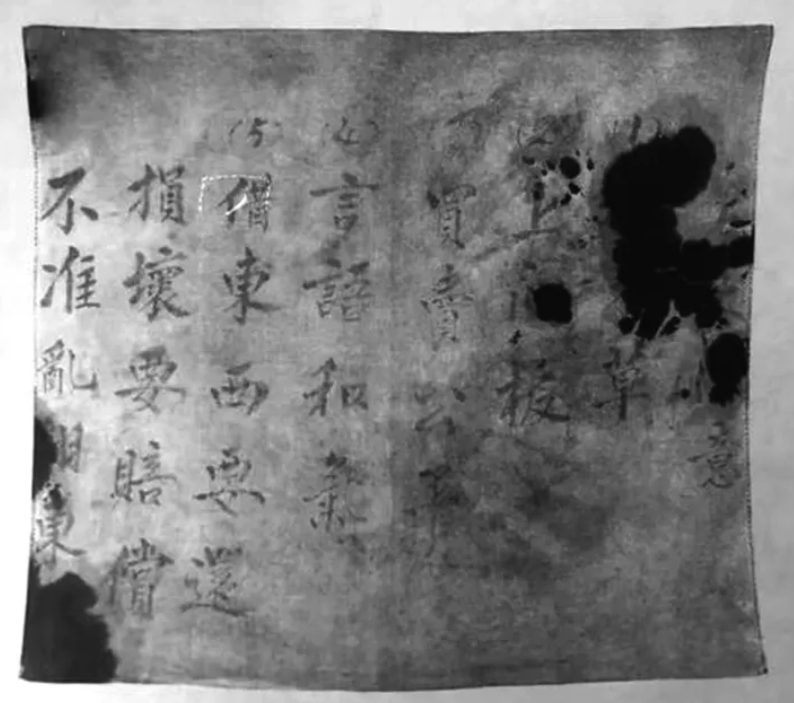 意
(1) 草
(2) 上 板
(3) 買賣公
(4) 言語和氣
(5) 借東西要還
損壞要賠償
不准亂 東